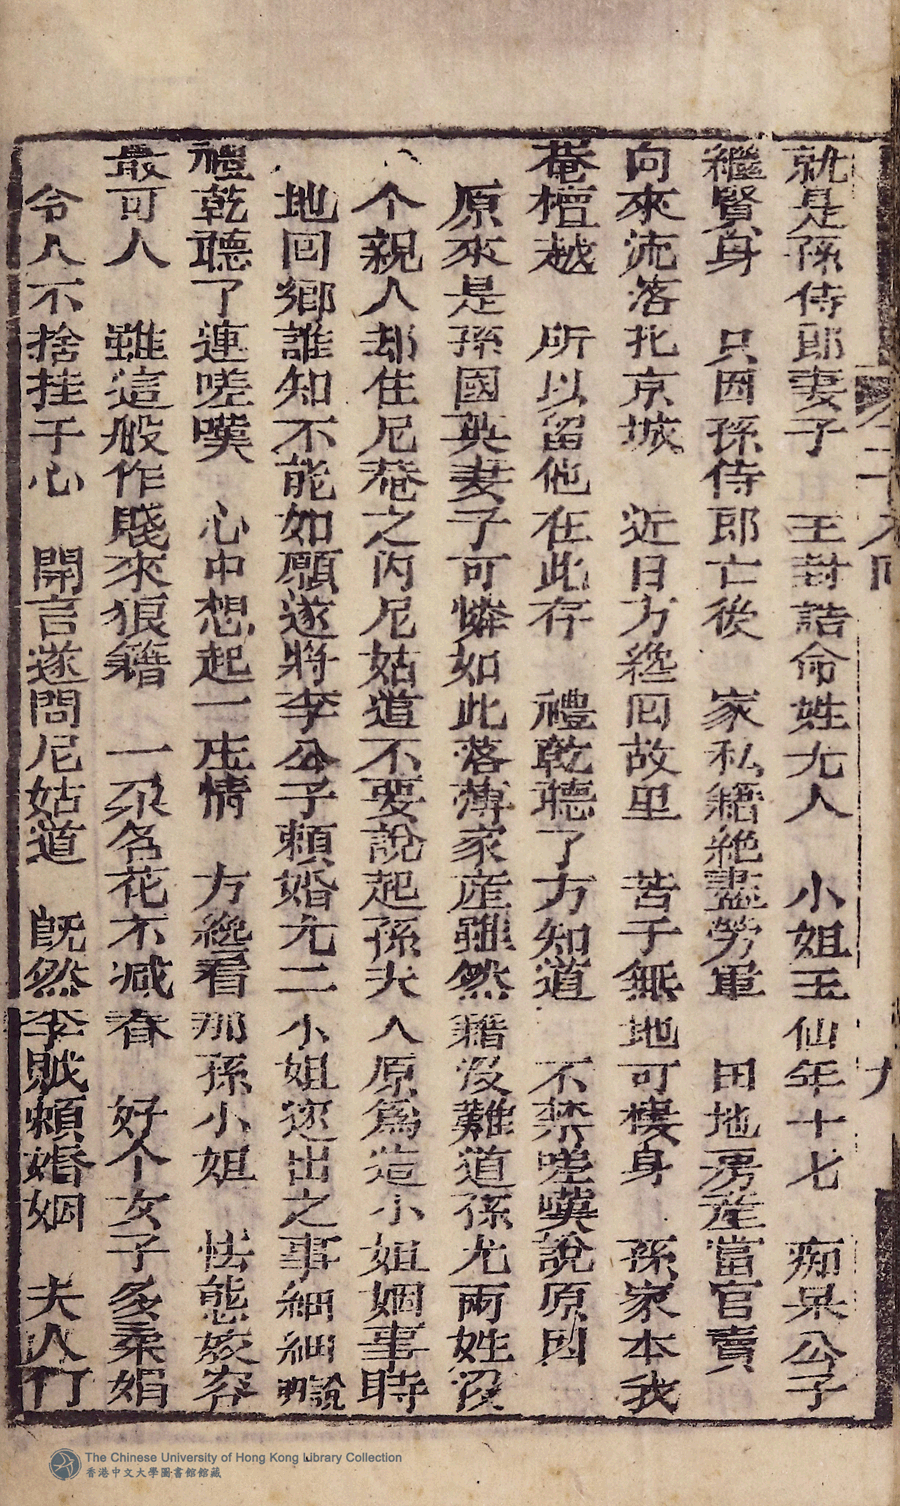 就是孫侍郎妻子　王封誥命姓尤人　小姐玉仙年十七　痴呆公子
繼賢身　只因孫侍郎亡後　家私籍絕盡勞軍　田地房產當官賣
向來流落北京城　近日方纔回故里　苦于無地可棲身　孫家本我
菴檀越　所以留他在此存　禮乾聽了方知道　不禁嗟嘆說原因
原來是孫國英妻子可憐如此落薄家產雖然籍沒難道孫尤兩姓沒
个親人却住尼菴之內尼姑道不要說起孫夫人原為這小姐姻事時
地回鄉誰知不能如願遂將李公子賴婚尤二小姐逐出之事細細說
禮乾聽了連嗟嘆　心中想起一庄情　方纔看那孫小姐　怯態姣容
最可人　雖這般作賤來狼籍　一朵名花不減春　好个女子多柔娟
令人不捨挂于心　開言遂問尼姑道　既然李賊賴婚姻　夫人
二十八回
九
The Chinese University of Hong Kong Library Collection
香港中文大學圖書館館藏